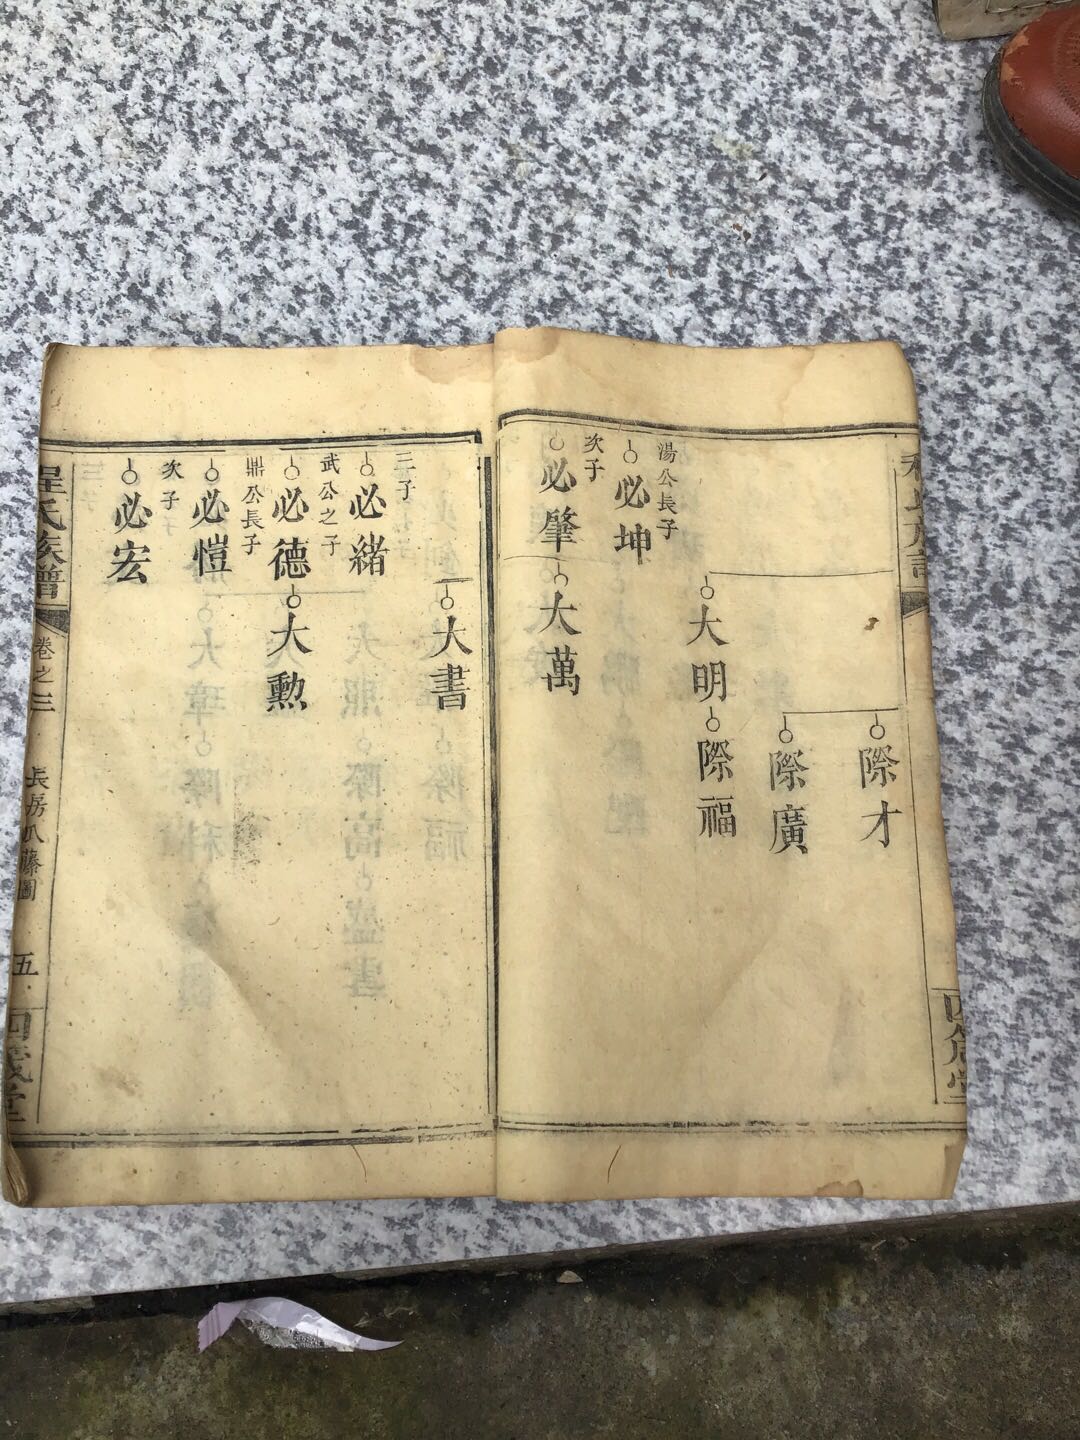 際才
際廣
大明
際福
湯公長子
必坤
次子
必肇
大萬
大書
三子
必緒
武公之子
必德
大勲
鼎公長子
必愷
次子
必宏
程氏族譜
卷之三
長房瓜藤圖
五
四箴堂